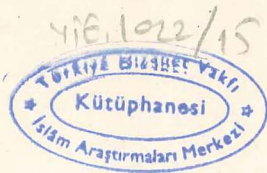 YİE.1022/15
Türkiye Diyanet Vakfı
Kütüphanesi
İslâm Araştırmaları Merkezi